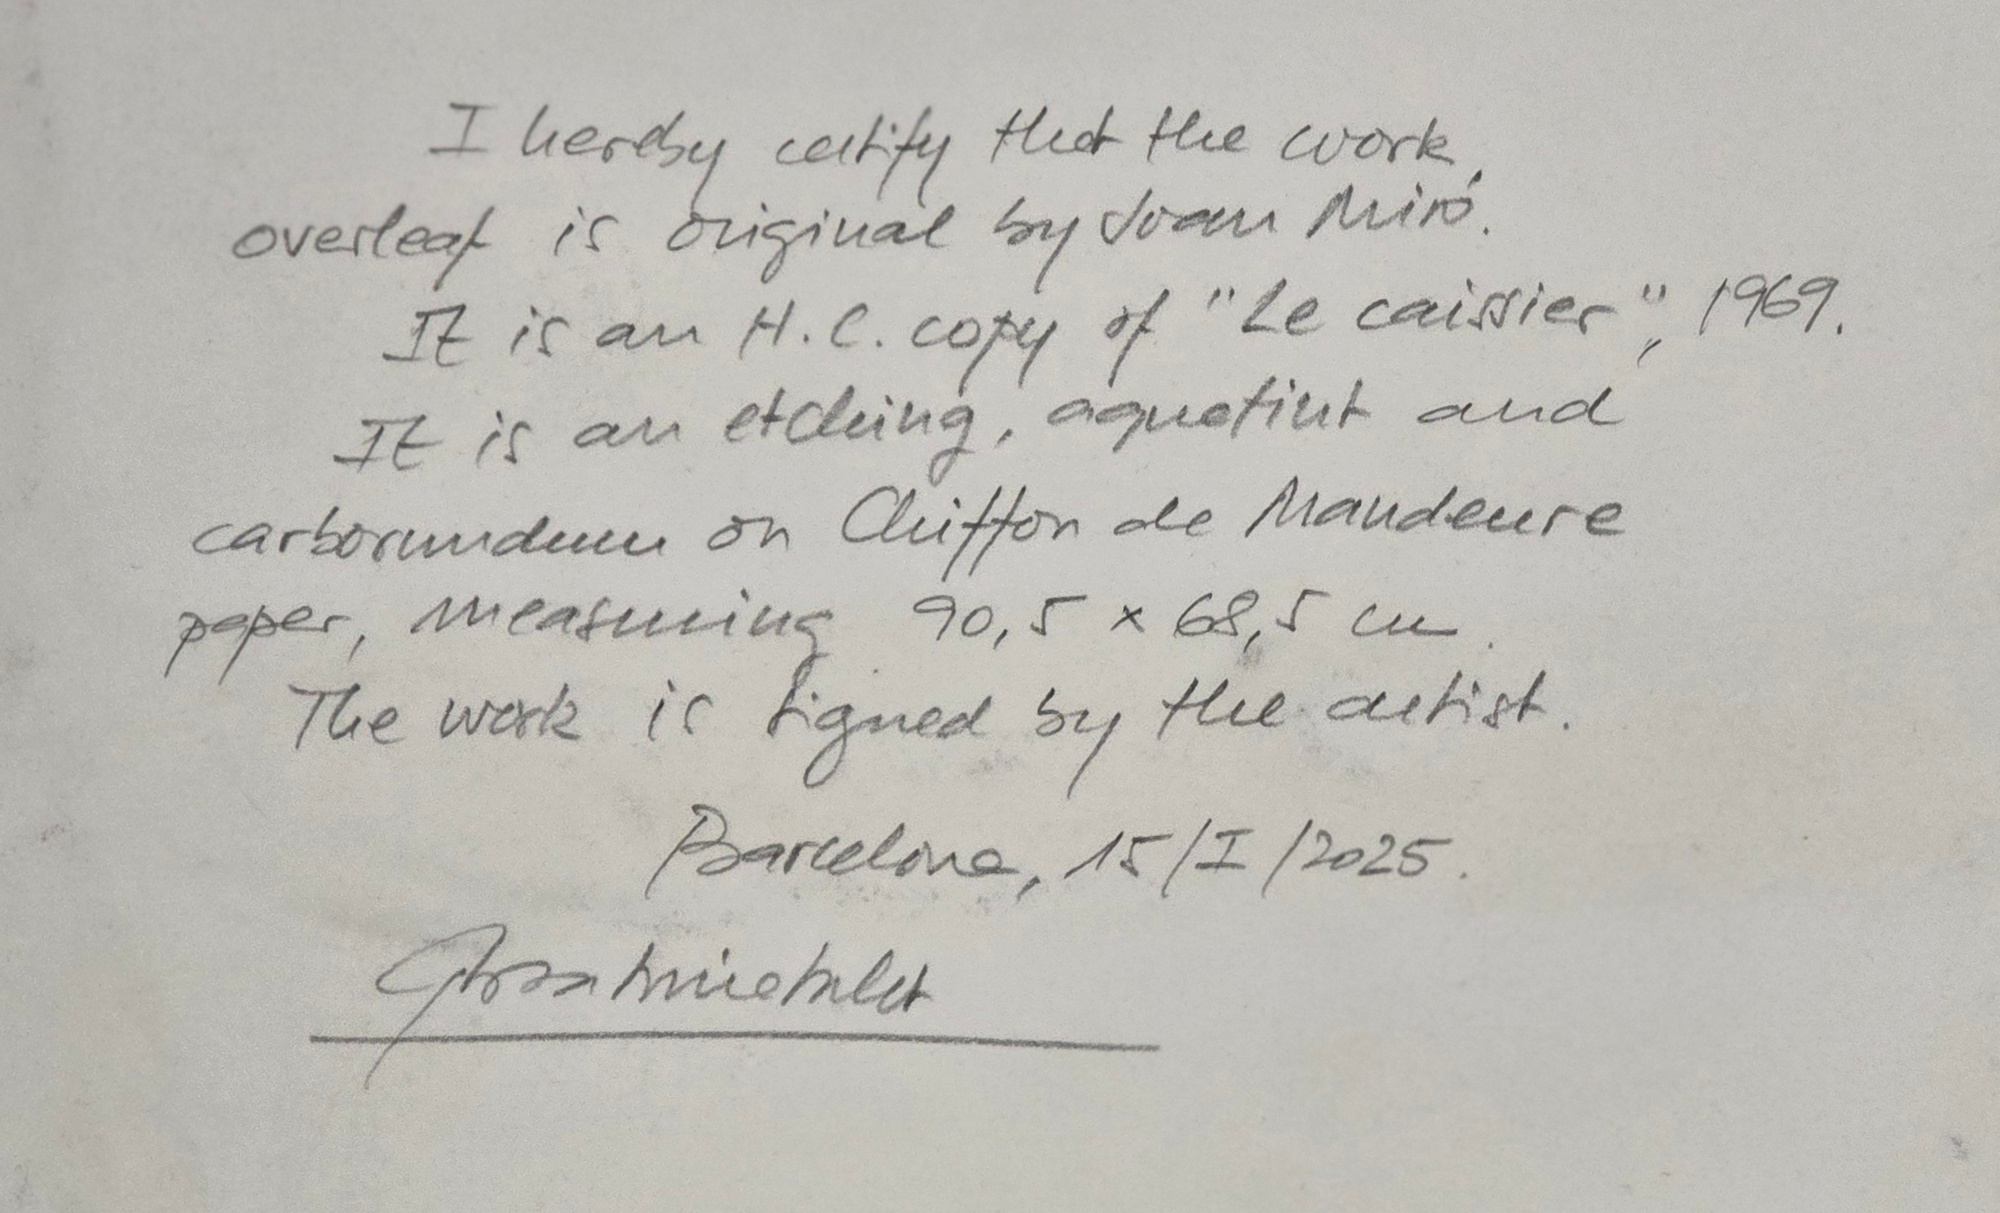 I hereby certify that the work,
overleaf is original by Joan Miró.
It is an H.C. copy of "Le caissier", 1969.
It is an etching, aquatint and
carborundum on Chiffon de Mandeure
paper, measuring 90,5 x 68,5 cm.
The work is signed by the artist.
Barcelona, 15/I/2025.